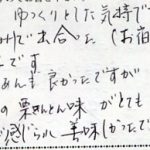 ゆっくりとした気持で
で出合った（お宿
です
あんも良かったですが
の栗きんとん味がとても
感じられ美味しかったで